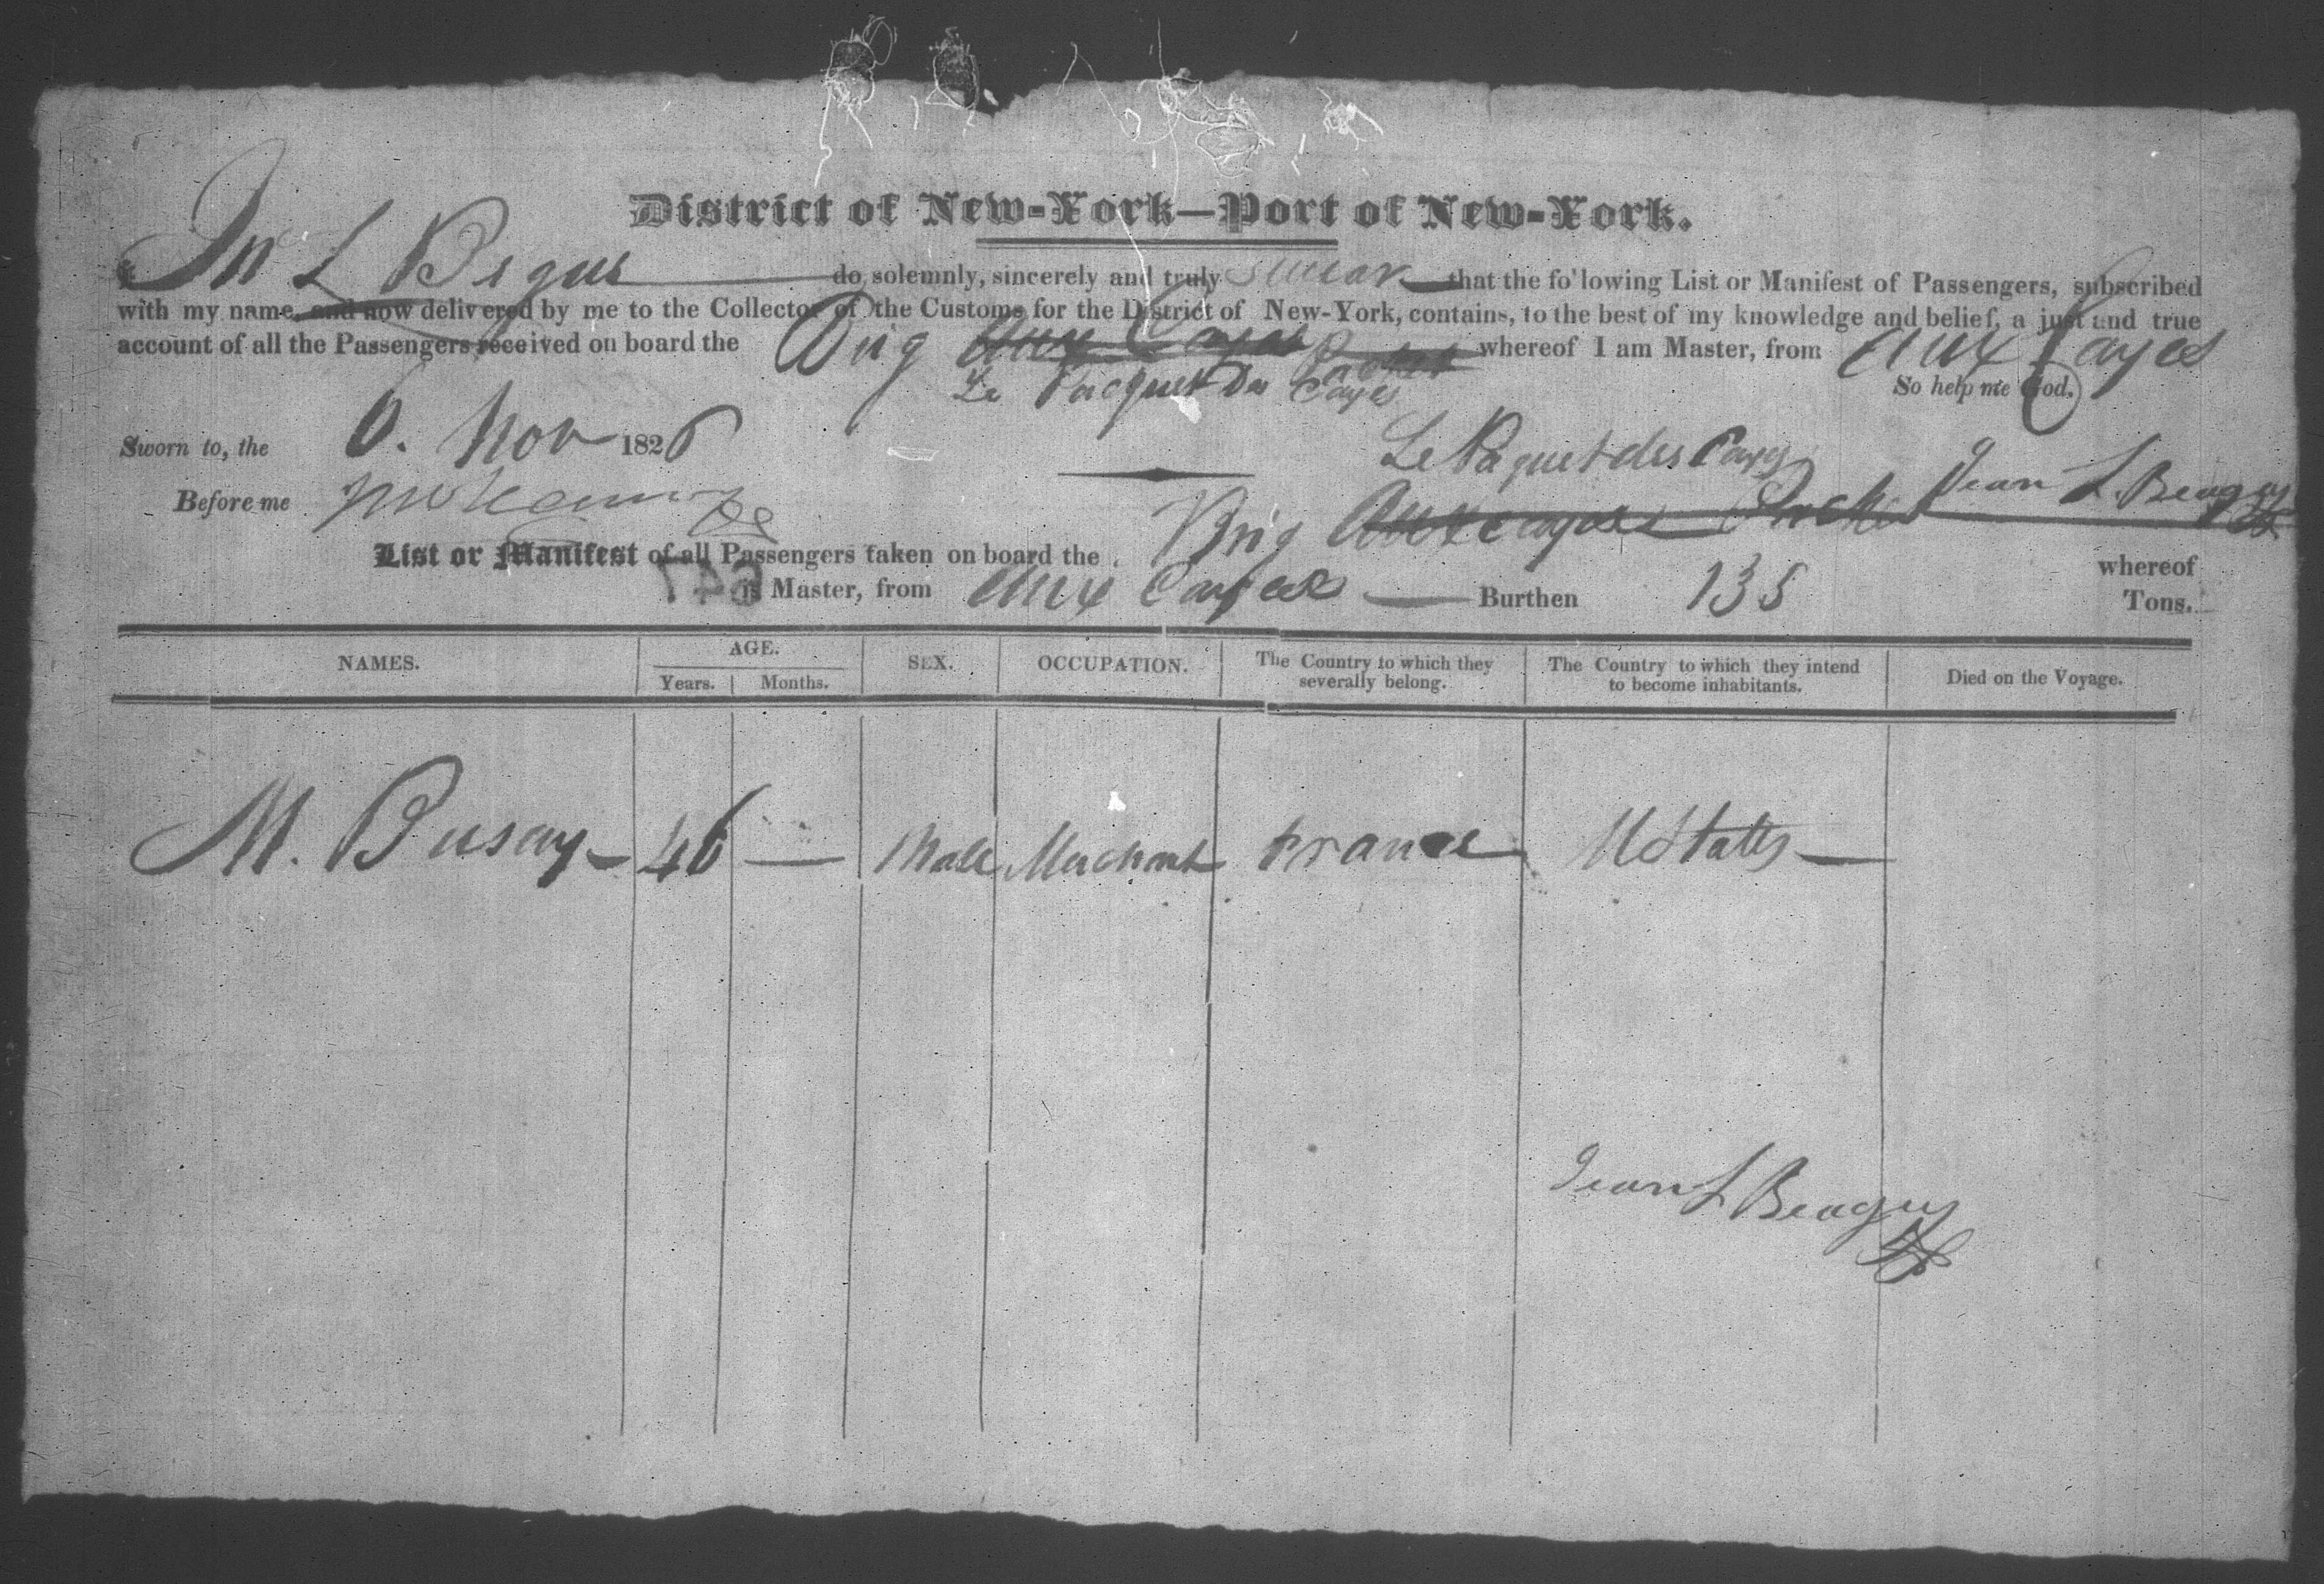 District of New-York—Port of New-York.
Jn L Begus do solemnly, sincerely and truly swear that the fo'lowing List or Manifest of Passengers, subscribed
with my name, and now delivered by me to the Collector of the Customs for the District of New-York, contains, to the best of my knowledge and belief, a just and true
account of all the Passengers received on board the Brig Aux Cayes Packet whereof I am Master, from Aux Cayes
Le Pacquet Des Cayes So help me God.
Sworn to, the 6. Nov 1826 Le Paquet des Cayes
Before me Brig Aux Cayes Packet Jean L. Beagus
List or Manifest of all Passengers taken on board the whereof
is Master, from Aux Cayes Burthen 135 Tons.
NAMES. AGE. SEX. OCCUPATION. The Country to which they severally belong. The Country to which they intend to become inhabitants. Died on the Voyage.
Years. Months.
M. Pusay 46 — Male Merchant France U States
Jean L Beagus